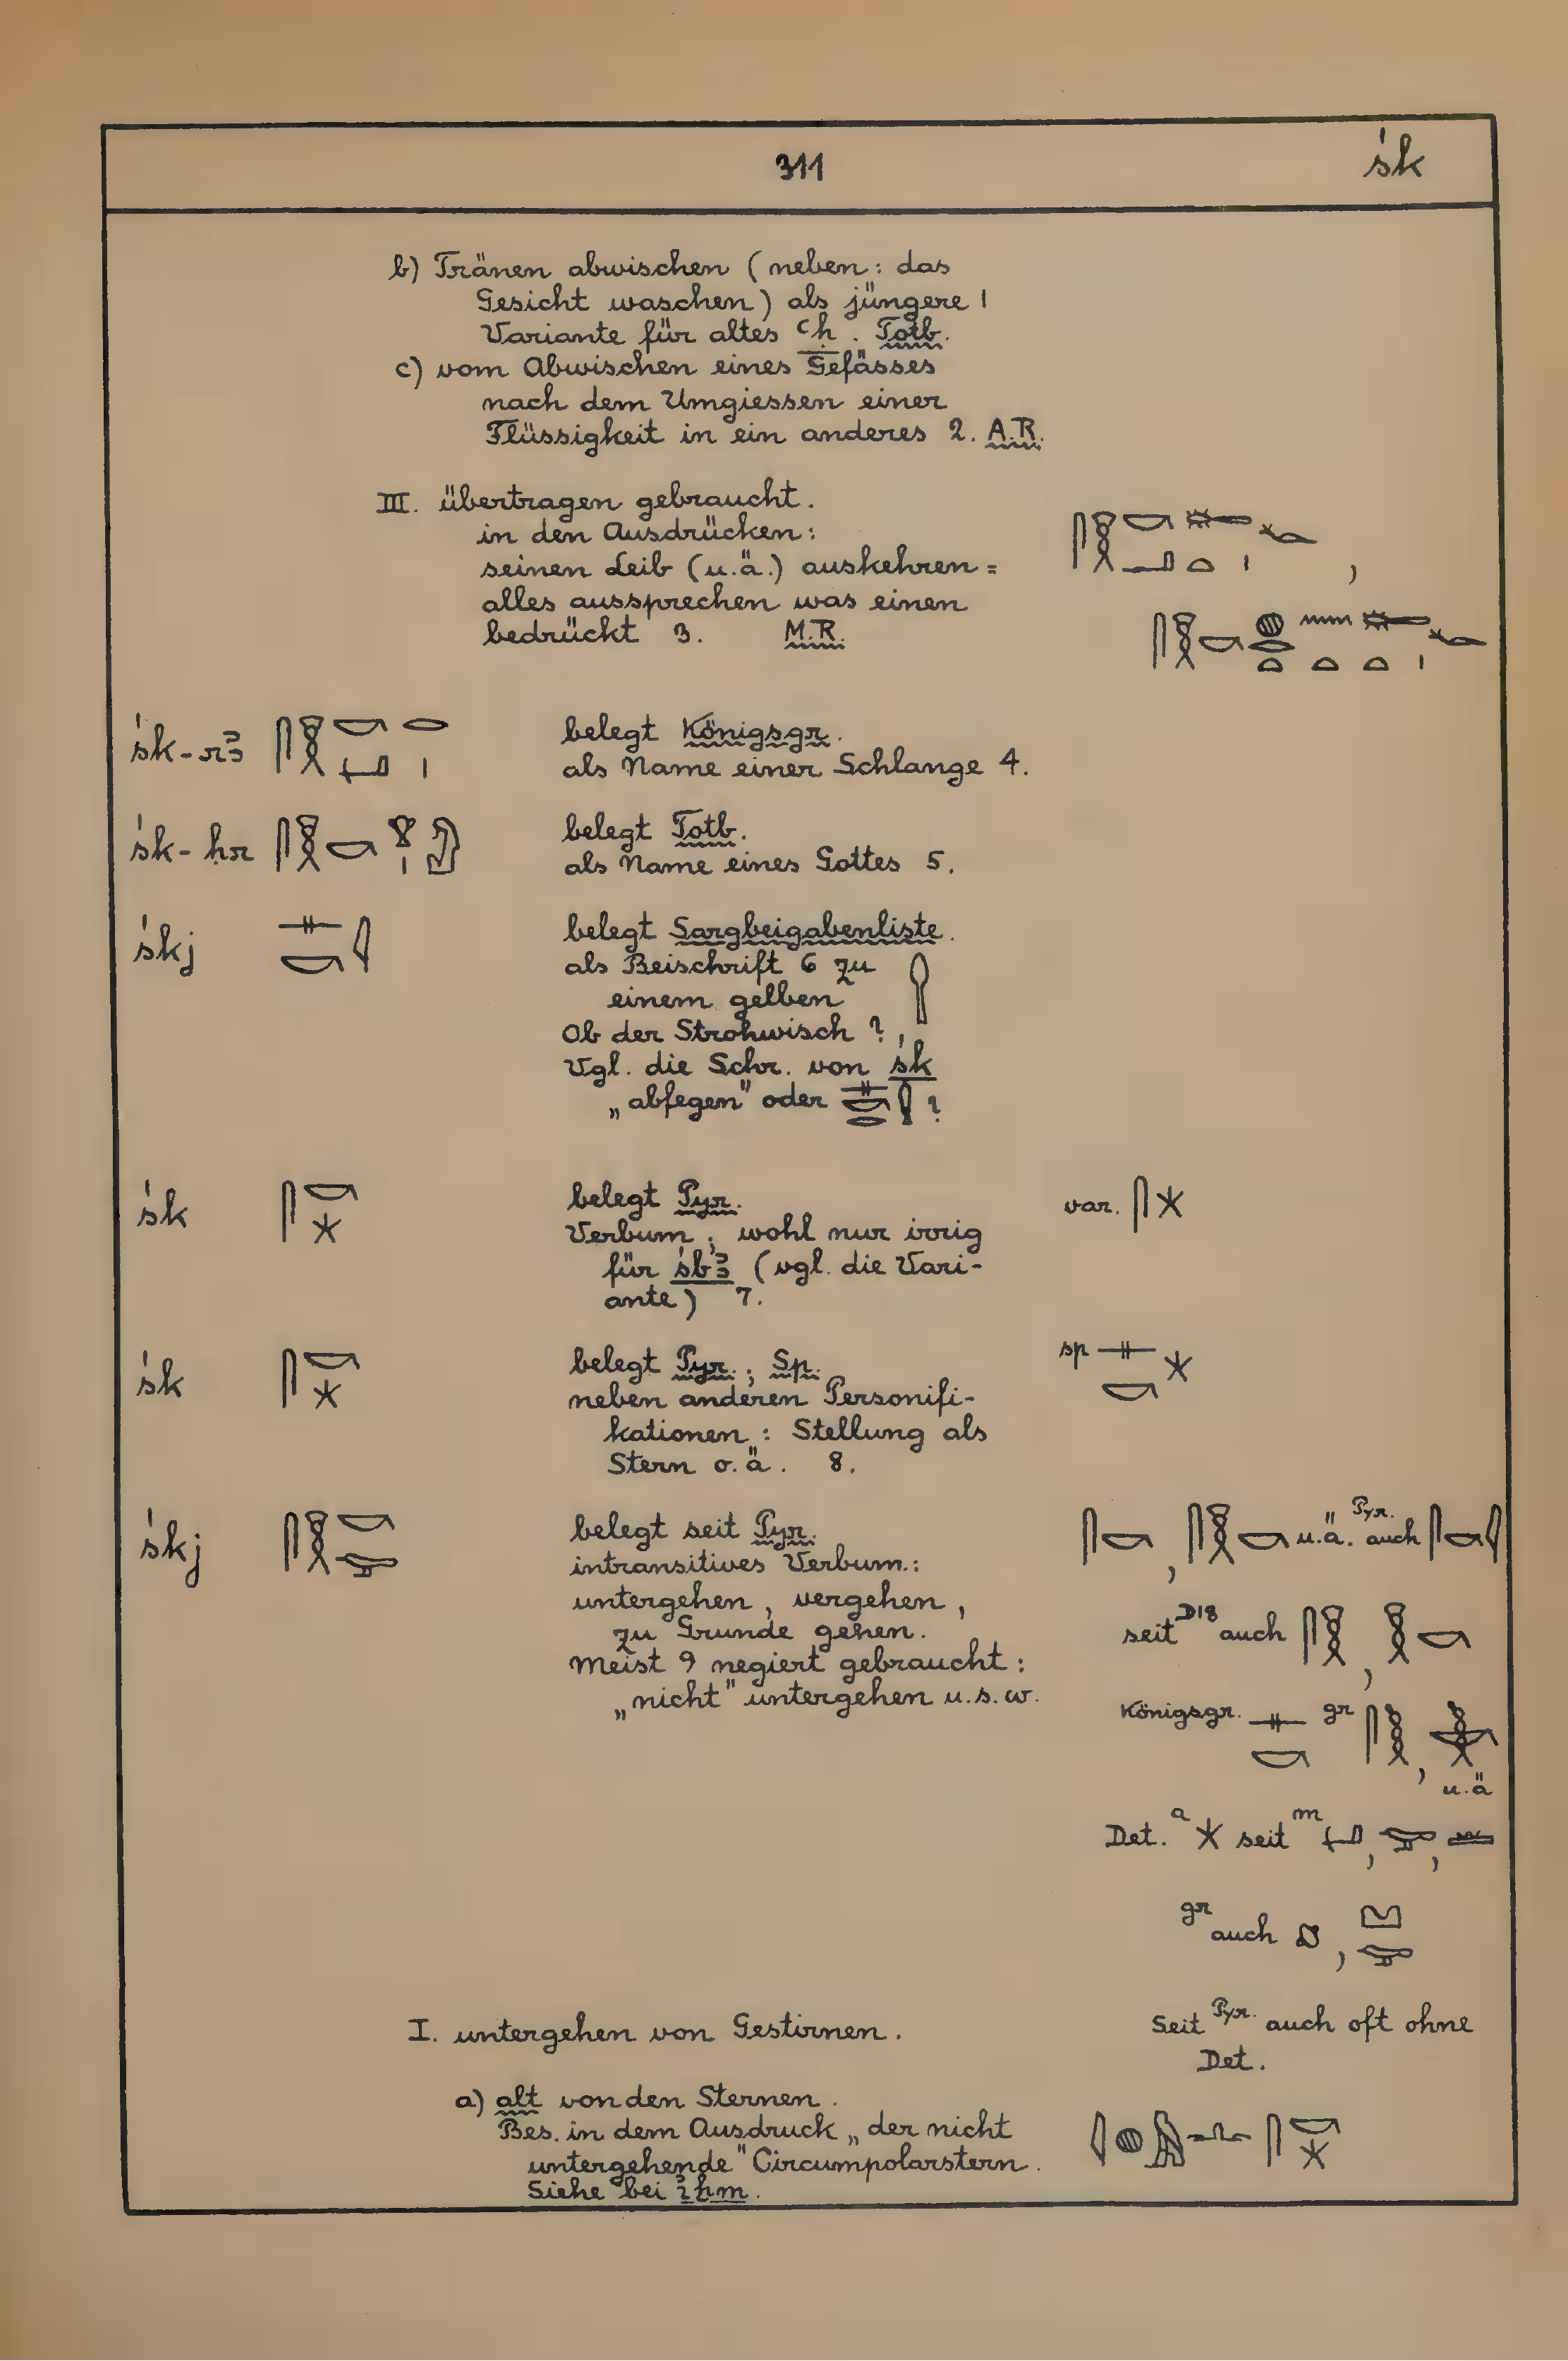 311
śk
b) Tränen abwischen (neben: das
Gesicht waschen) als jüngere 1
Variante für altes ꜥḫ. Totb.
c) vom Abwischen eines Gefässes
nach dem Umgiessen einer
Flüssigkeit in ein anderes 2. A.R.
III. übertragen gebraucht.
in den Ausdrücken:
seinen Leib (u.ä.) auskehren =
alles aussprechen was einen
bedrückt 3. M.R.
śk-rꜣ
belegt Königsgr.
als Name einer Schlange 4.
śk-ḥr
belegt Totb.
als Name eines Gottes 5.
śkj
belegt Sargbeigabenliste.
als Beischrift 6 zu
einem gelben
Ob der Strohwisch?
Vgl. die Schr. von śk
„abfegen" oder ?
śk
belegt Pyr. var.
Verbum; wohl nur irrig
für śbꜣ (vgl. die Vari-
ante) 7.
śk
belegt Pyr.; Sp. sp
neben anderen Personifi-
kationen: Stellung als
Stern o.ä. 8.
śkj
belegt seit Pyr. , u.ä. Pyr. auch
intransitives Verbum:
untergehen, vergehen,
zu Grunde gehen. seit D18 auch ,
Meist 9 negiert gebraucht:
„nicht" untergehen u.s.w.
Königsgr. gr , u.ä
Det. a seit m , ,
gr auch ,
I. untergehen von Gestirnen. Seit Pyr. auch oft ohne
Det.
a) alt von den Sternen.
Bes. in dem Ausdruck „der nicht
untergehende" Circumpolarstern.
Siehe bei iḫm.